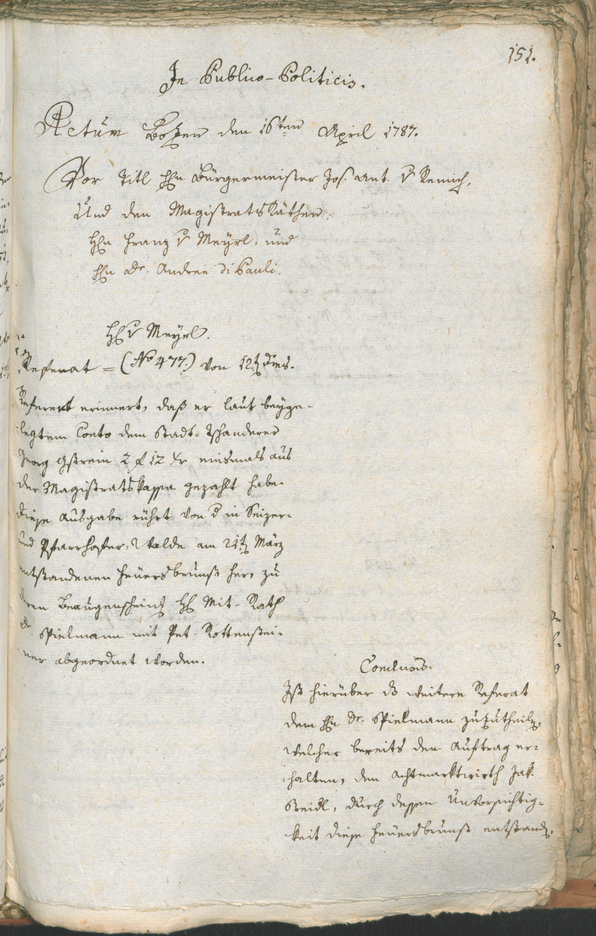 151.
In Publico-Politicis.
Actum Bozen den 16ten April 1787.
Vor Titl Hn Bürgermeister Jos. Ant. v Remich,
Und den Magistrats Räthen:
Hn Franz v Meyrl, und
Hn Dr. Andree di Pauli.
H v Meyrl.
Referat = (No 477.) von 12t dies.
Referent erinnert, daß er laut beyge-
legtem Conto dem Stadt.
Georg Gstrein 2 f 12 xr einsmals aus
der Magistratskassa gezahlt habe.
Diese Ausgabe rührt von d in Seizer-
und Pfarrhofer-Walde am 21t März
entstandenen Feuersbrunst her, zu
deren Beaugenscheinig H Mit-Rath
Dr. Spielmann mit Pet. Rottenstei-
ner abgeordnet worden.
Conclusis.
Ist hierüber ds weitere Referat
dem Hn Dr. Spielmann zuzutheiln,
welcher bereits den Auftrag er-
halten, dem Achtmarktwirth Jak.
Steidl, durch dessen Unvorsichtig-
keit diese Feuersbrunst entstand,